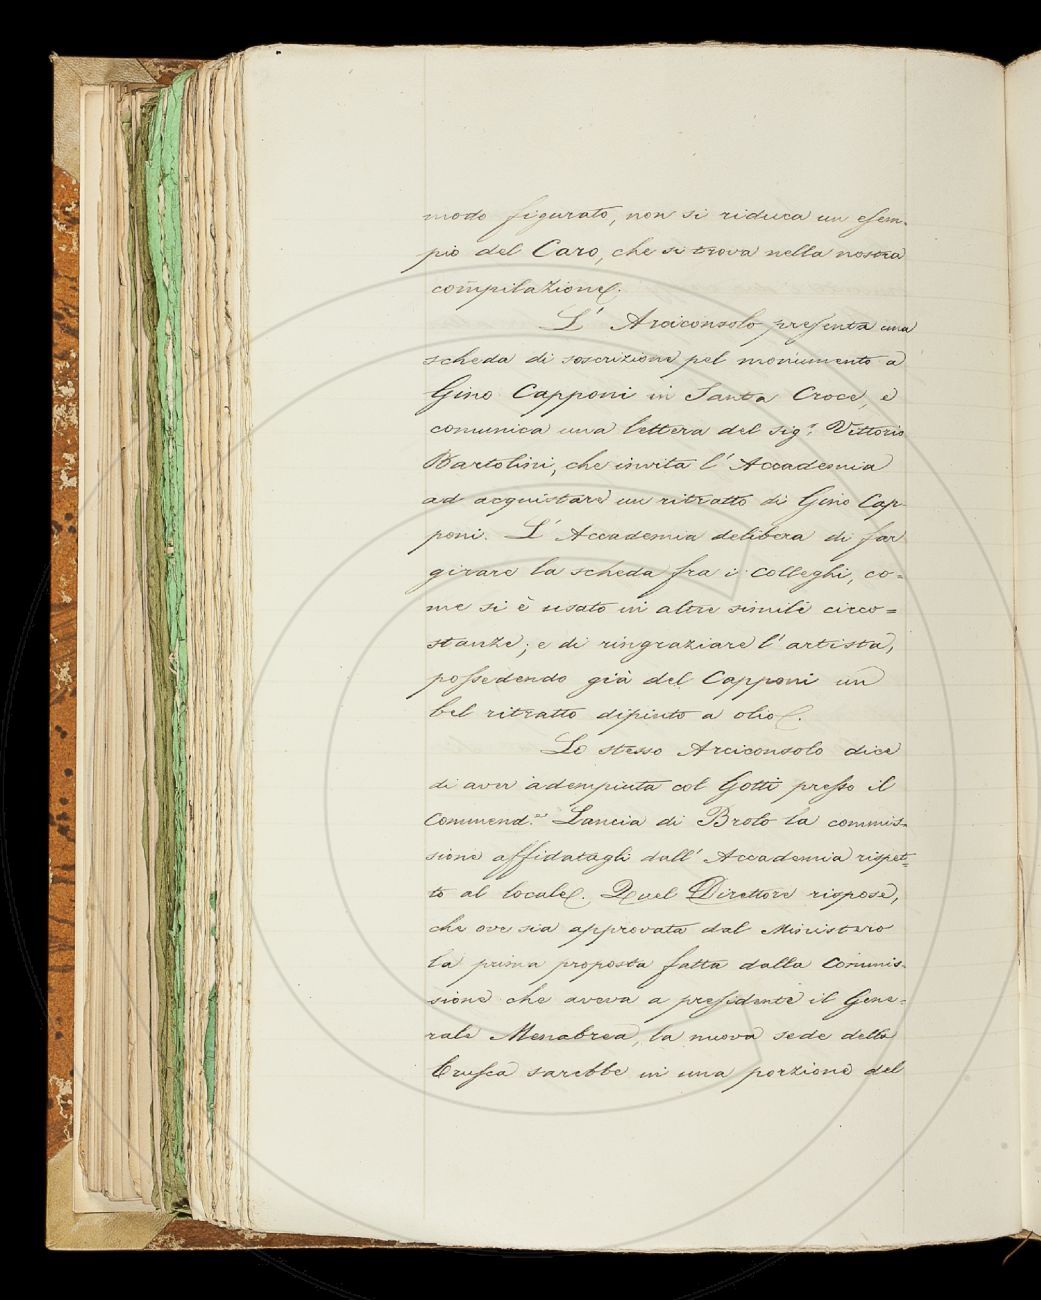 modo figurato, non si riduca un esem-
pio del Caro, che si trova nella nostra
compilazione.
L' Arciconsolo presenta una
scheda di soscrizione pel monumento a
Gino Capponi in Santa Croce, e
comunica una lettera del sig.r Vittorio
Bartolini, che invita l' Accademia
ad acquistare un ritratto di Gino Cap-
poni. L' Accademia delibera di far
girare la scheda fra i Colleghi, co=
me si è usato in altre simili circo=
stanze; e di ringraziare l' artista,
possedendo già del Capponi un
bel ritratto dipinto a olio.
Lo stesso Arciconsolo dice
di aver adempiuta col Gotti presso il
Commend.re Lancia di Brolo la commis-
sione affidatagli dall' Accademia rispet=
to al locale. Quel Direttore rispose,
che ove sia approvata dal Ministero
la prima proposta fatta dalla Commis-
sione che aveva a presidente il Gene=
rale Menabrea, la nuova sede della
Crusca sarebbe in una porzione del